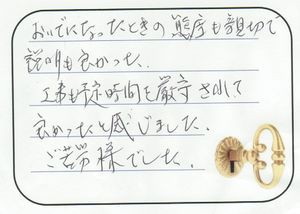 おいでになったときの態度も親切で
説明も良かった.
工事も予定時間を厳守されて
良かったと感じました.
ご苦労様でした.